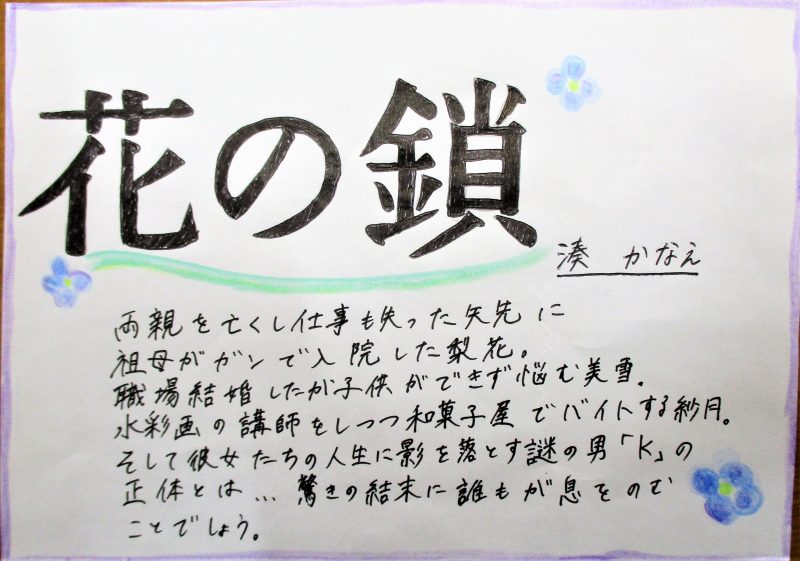 花の鎖
湊 かなえ
両親を亡くし仕事も失った矢先に
祖母がガンで入院した梨花。
職場結婚したが子供ができず悩む美雪。
水彩画の講師をしつつ和菓子屋でバイトする紗月。
そして彼女たちの人生に影を落とす謎の男「K」の
正体とは...驚きの結末に誰もが息をのむ
ことでしょう。